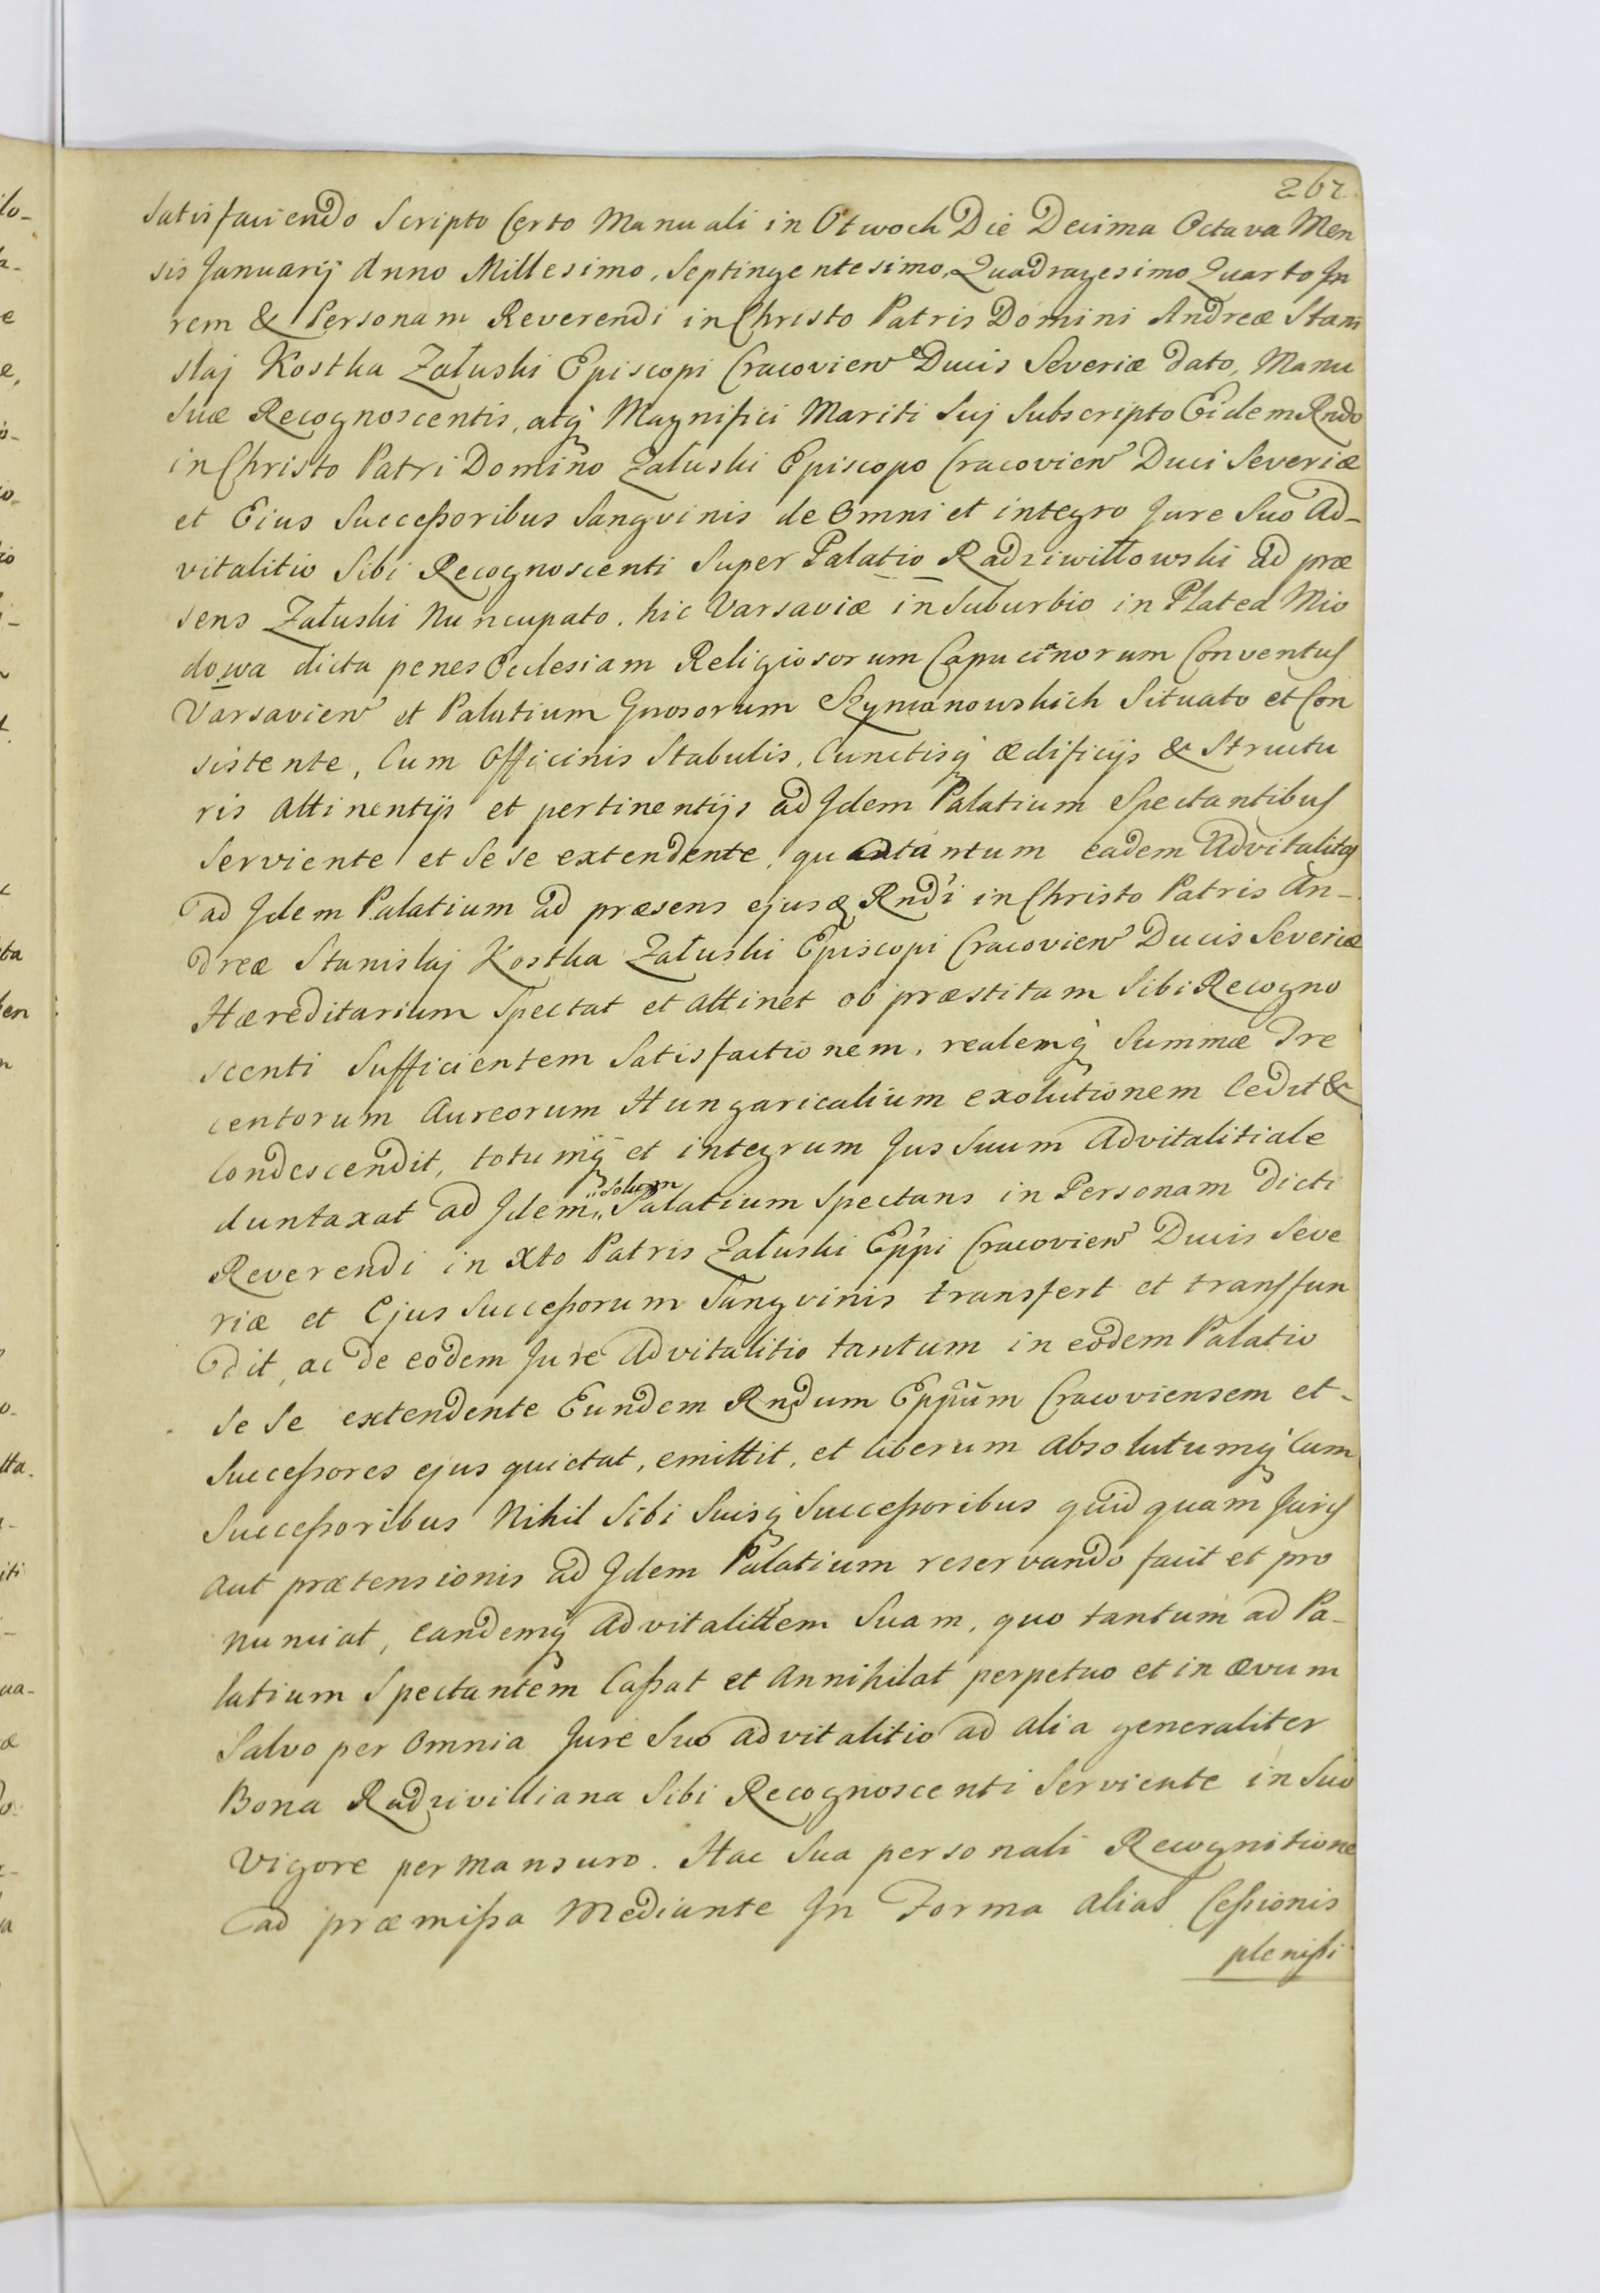 262
Satisfaciendo Scripto Certo Manuali in Otwock Die Decima Octava Men
sis Januarij Anno Millesimo, Septingentesimo, Quadragesimo Quarto In
rem & Personam Reverendi in Christo Patris Domini Andreæ Stani
slaj Kostka Załuski Episcopi Cracovien Ducis Severiæ dato, Manu
Suæ Recognoscentis, atq Magnifici Mariti Suj Subscripto Eidem Rndo
in Christo Patri Domino Załuski Episcopo Cracovien Duci Severiæ
et Eius Successoribus Sangvinis de Omni et integro Jure Suo Ad-
vitalitio Sibi Recognoscenti Super Palatio Radziwiłłowski ad præ
sens Załuski Nuncupato, hic Varsaviæ in Suburbio in Platea Mio
dowa dicta penes Ecclesiam Religiosorum Capucinorum Conventus
Varsavien et Palatium Gnosorum Szymanowskich Situato et Con
sistente, Cum Officinis Stabulis, Cunctisq ædificijs & Structu
ris Attinentijs et pertinentijs ad Idem Palatium Spectantibus
Serviente et Se se extendente, quantantum eadem Advitalitas
ad Idem Palatium ad præsens ejusd Rndi in Christo Patris An-
dreæ Stanislaj Kostka Załuski Episcopi Cracovien Ducis Severiæ
Hæreditarium Spectat et Attinet ob præstitam Sibi Recogno
scenti Sufficientem Satisfactionem, realemq Summæ Tre
centorum Aureorum Hungaricalium exolutionem Cedit &
Condescendit, totumq et integrum Jus Suum Advitalitiale
duntaxat ad Idem Solum Palatium Spectans in Personam dicti
Reverendi in Xto Patris Załuski Eppi Cracovien Ducis Seve
riæ et Ejus Successorum Sangvinis transfert et transfun
dit, ac de eodem Jure Advitalitio tantum in eodem Palatio
Se Se extendente Eundem Rndum Eppum Cracoviensem et-
Successores ejus quietat, emittit, et liberum Absolutumq Cum
Successoribus Nihil Sibi Suisq Successoribus quid quam Juris
Aut prætensionis ad Idem Palatium reservando facit et pro
nunciat, eandemq Advitalittem Suam, quo tantum ad Pa-
latium Spectantem Cassat et Annihilat perpetuo et in ævum
Salvo per Omnia Jure Suo Advitalitio ad Alia generaliter
Bona Radziviliana Sibi Recognoscenti Serviente in Suo
Vigore permansuro. Hac Sua personali Recognitione
ad præmissa Mediante In Forma alias Cessionis
plenissi